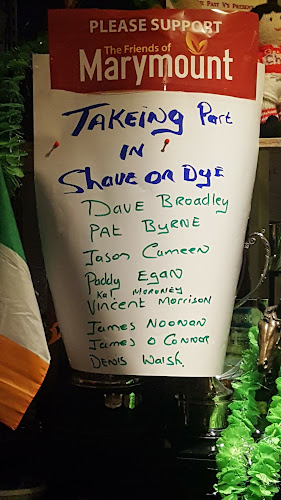 PLEASE SUPPORT
The Friends of
Marymount
TAKEING Part
IN
Shave or Dye
Dave Broadley
PAT BYRNE
Jason Cumeen
Paddy Egan
Kat MORONEY
Vincent Morrison
James NOONAN
James O CONNOR
DENIS Walsh.